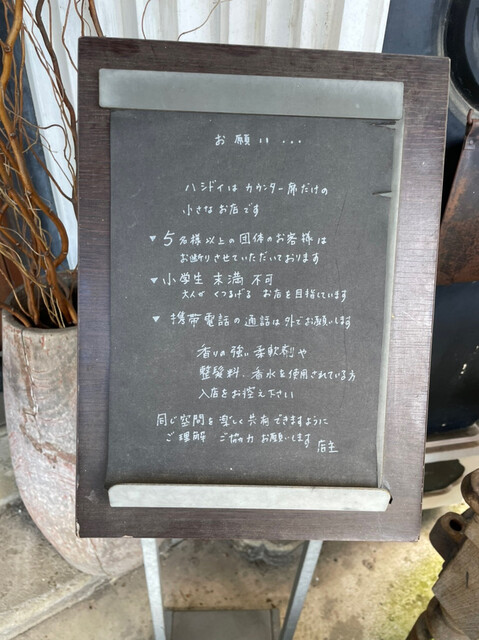 お願い...
ハシドイは カウンター席だけの
小さな お店です
▼ 5名様以上の団体のお客様は
お断りさせていただいております
▼ 小学生 未満 不可
大人が くつろげる お店を目指しています
▼ 携帯電話の通話は外でお願いします
香りの強い 柔軟剤や
整髪料、香水を使用されている方
入店をお控え下さい
同じ空間を楽しく共有できますように
ご理解 ご協力 お願いします 店主